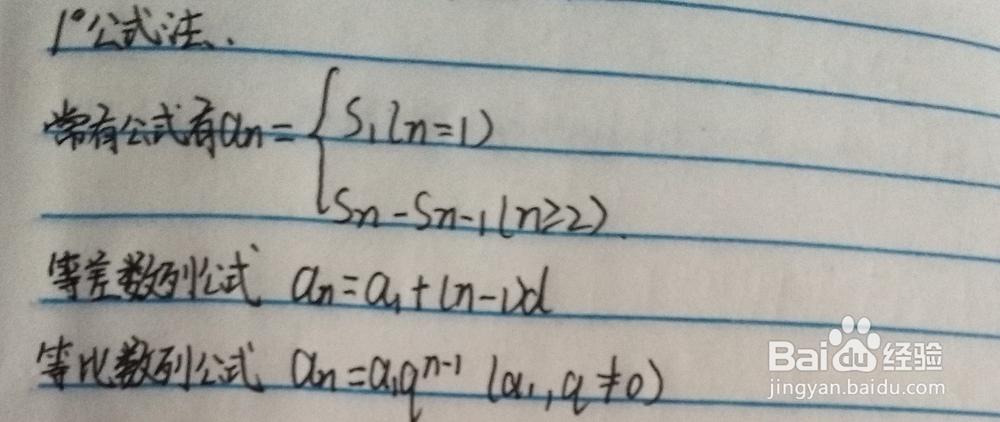 1°公式法.
常有公式有an={S1(n=1)
Sn-Sn-1(n≥2).
等差数列公式 an=a1+(n-1)d
等比数列公式 an=a1qⁿ⁻¹ (a1,q≠0)
Baidu经验
jingyan.baidu.com